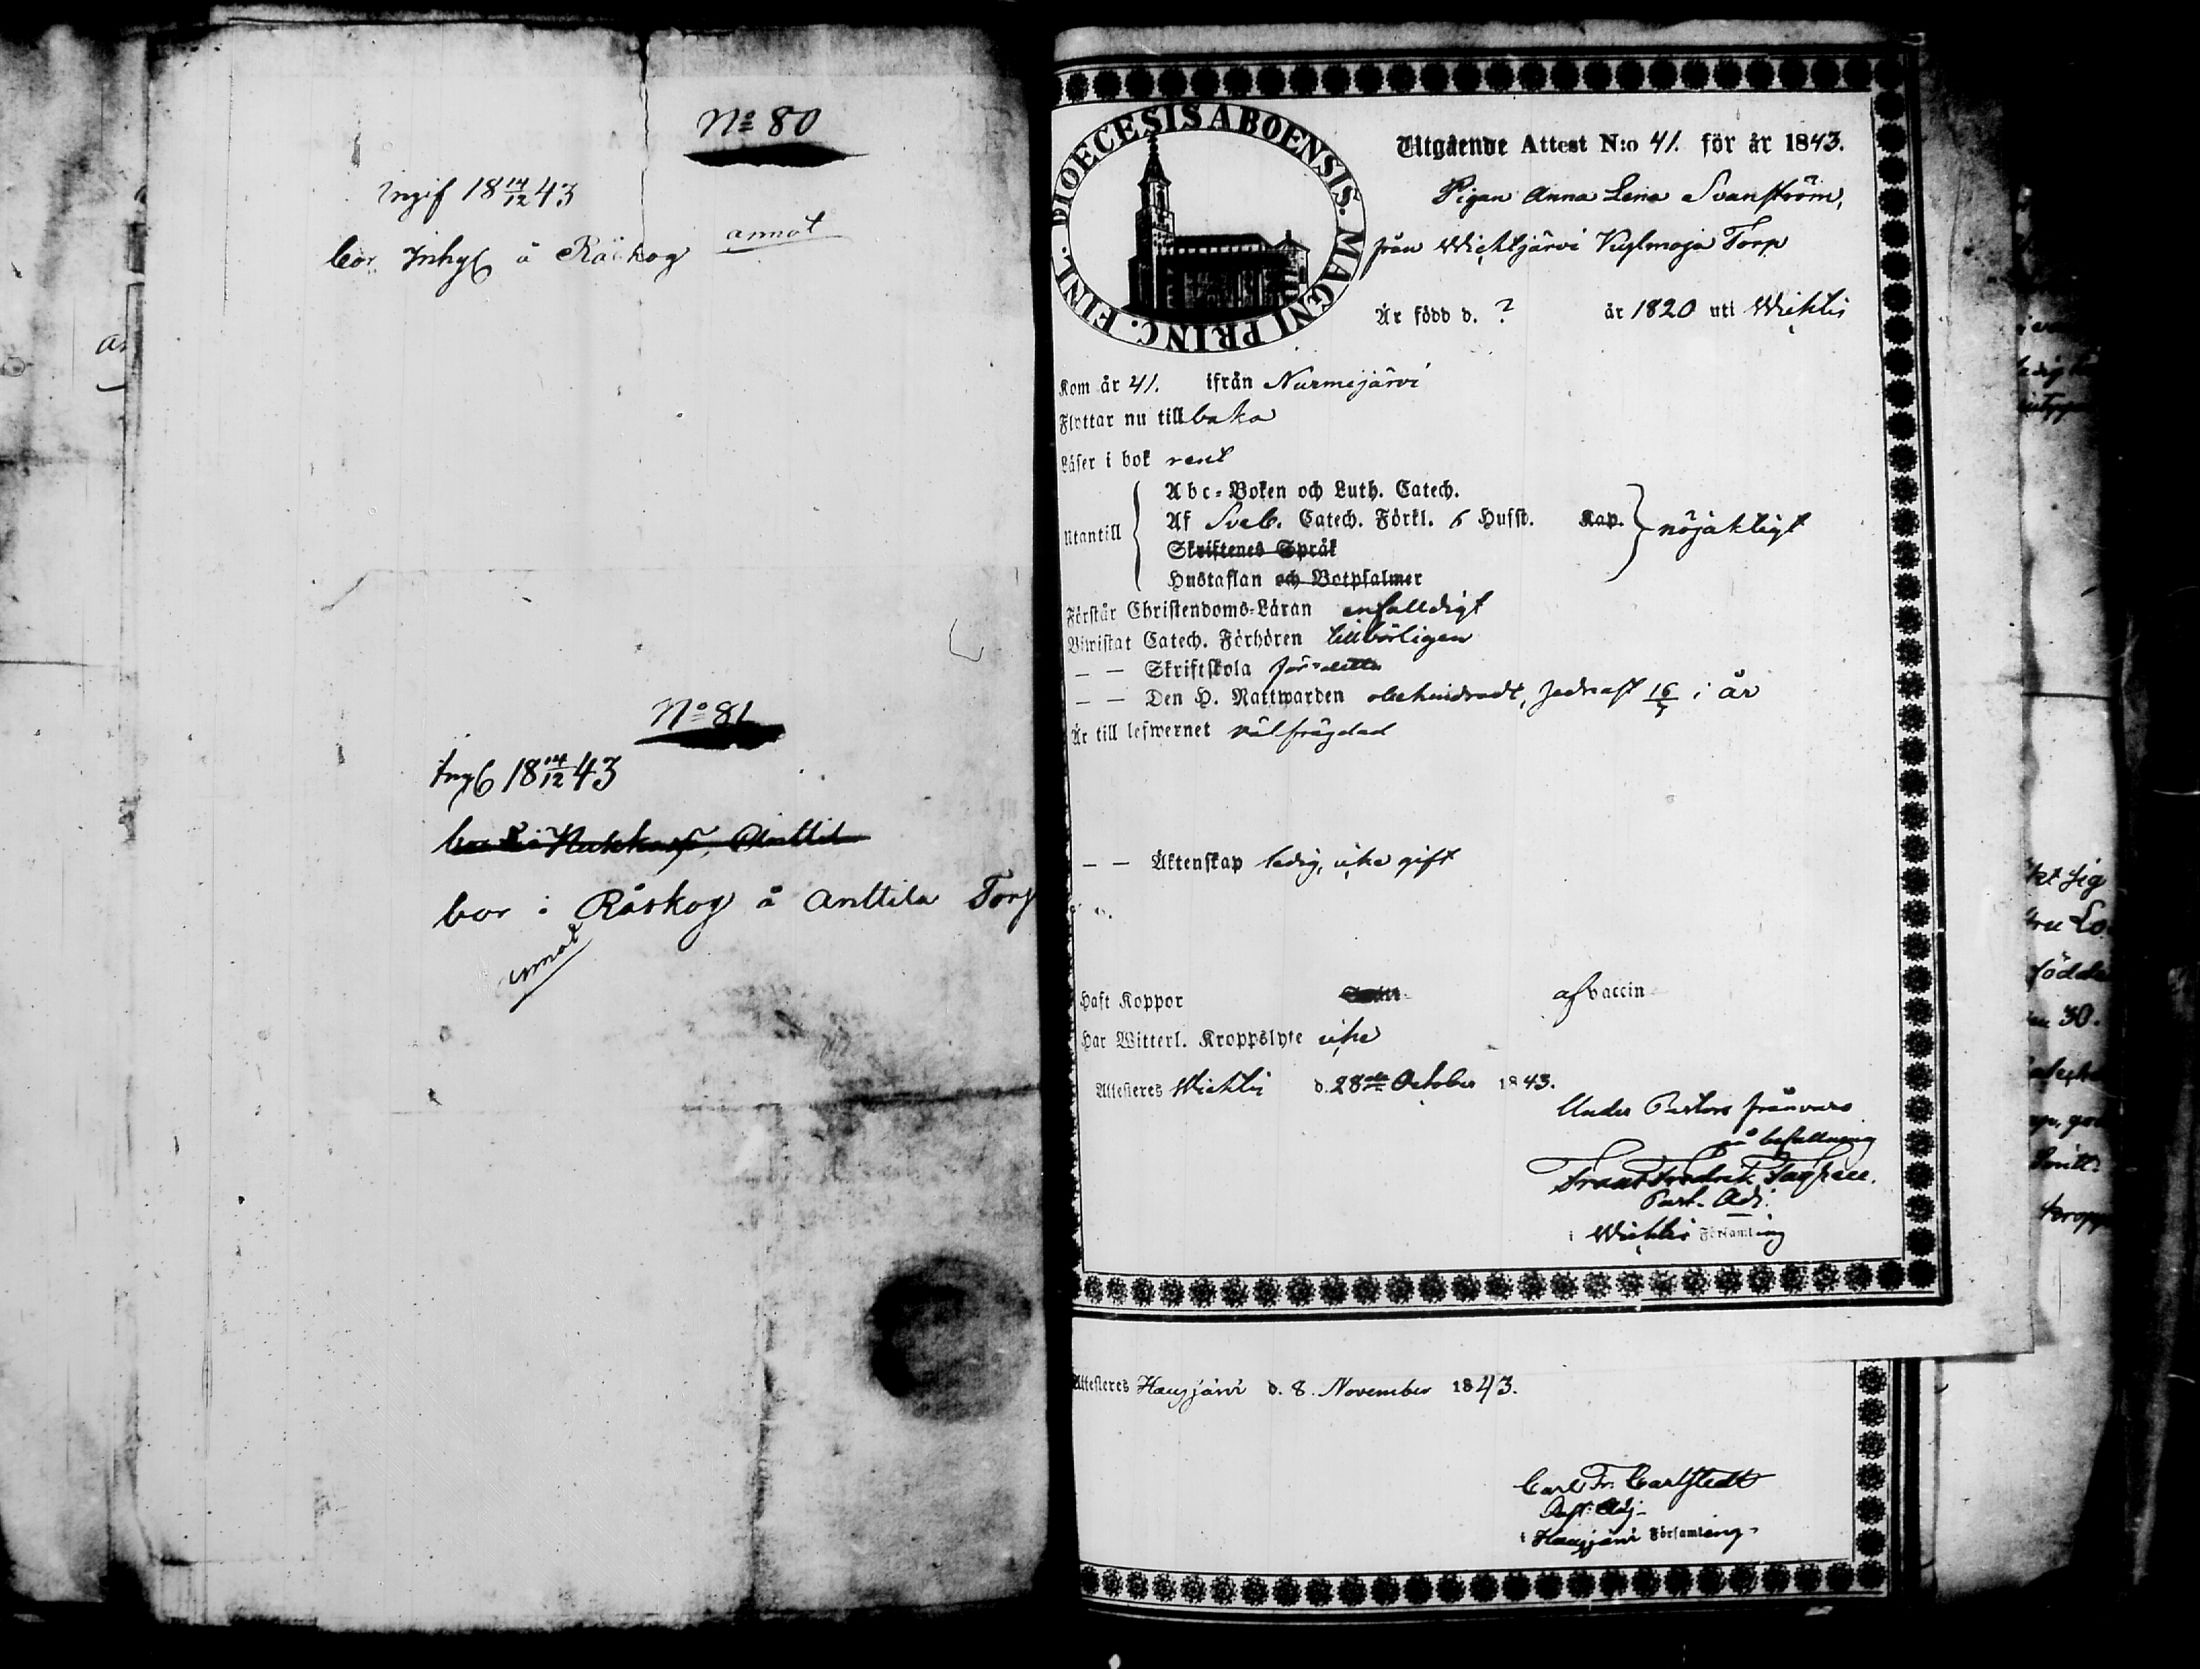 No 80
Ingif 18 14/12 43
bor Inhys å Råskog annot
No 81
Ing 18 14/12 43
bor i Råskog å Anttila Torp
annot
DIOECESIS ABOENSIS. MAGNI PRINC. FINL.
Utgående Attest N:o 41. för år 1843.
Pigan Anna Lena Svanström,
från Wichtjärvi Kylmäoja Torp
Är född d. ? år 1820 uti Wichtis
Kom år 41. ifrån Nurmijärvi
Flyttar nu tillbaka
Läser i bok rent
Utantill
Abc-Boken och Luth. Catech.
Af Sveb. Catech. Förkl. 6 Hufst. Kap. nöjaktigt
Skriftenes Språk
Hustaflan och Botpsalmer
Förstår Christendoms-Läran enfalldigt
Biwistat Catech. Förhören tillbörligen
— — Skriftskola för detta
— — Den H. Nattwarden obehindradt, sednast 16/7 i år
Är till lefwernet välfrägdad
— — Äktenskap ledig, icke gift
Haft Koppor af vaccin
Har Witterl. Kroppslyte icke
Attesteres Wichtis d. 28de October 1843.
Under Pastors frånvaro
på befallning
Frans Fredrik
Past. Adj.
i Wichtis Församling
Attesteres Hausjärvi d. 8. November 1843.
Carl Fr. Carlstedt
Past. Adj.
i Hausjärvi Församling